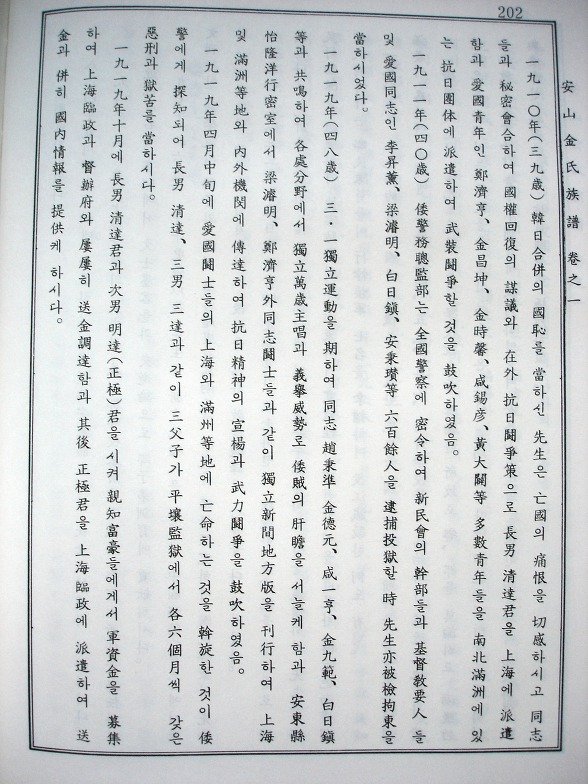 202
安山金氏族譜 卷之一
一九一○年(三九歲) 韓日合併의 國恥를 當하신 先生은 亡國의 痛恨을 切感하시고 同志
들과 秘密會合하여 國權回復의 謀議와 在外 抗日鬪爭策으로 長男 清達君을 上海에 派遣
함과 愛國青年인 鄭濟亨、金昌坤、金時馨、咸錫彦、黃大闢等 多數青年들을 南北滿洲에 있
는 抗日團体에 派遣하여 武裝鬪爭할 것을 鼓吹하였음。
一九一一年(四○歲) 倭警務聰監部는 全國警察에 密令하여 新民會의 幹部들과 基督敎要人 들
및 愛國同志인 李昇薰、梁濬明、白日鎭、安秉瓚等 六百餘人을 逮捕投獄할 時 先生亦被檢拘束을
當하시었다。
一九一九年(四八歲) 三·一獨立運動을 期하여 同志 趙秉準 金德元、咸一亨、金九範、白日鎭
等과 共鳴하여 各處分野에서 獨立萬歲主唱과 義擧威勢로 倭賊의 肝瞻을 서늘케 함과 安東縣
怡隆洋行密室에서 梁濬明、鄭濟亨外同志鬪士들과 같이 獨立新聞地方版을 刊行하여 上海
및 滿洲等地와 內外機関에 傳達하여 抗日精神의 宣楊과 武力鬪爭을 鼓吹하였음。
一九一九年四月中旬에 愛國鬪士들의 上海와 滿州等地에 亡命하는 것을 斡旋한 것이 倭
警에게 探知되어 長男 清達、三男 三達과 같이 三父子가 平壤監獄에서 各六個月씩 갖은
惡刑과 獄苦를 當하시다。
一九一九年十月에 長男 清達君과 次男 明達(正極)君을 시켜 親知富豪들에게서 軍資金을 募集
하여 上海臨政과 督辦府와 屢屢히 送金調達함과 其後 正極君을 上海臨政에 派遣하여 送
金과 併히 國內情報를 提供케 하시다。